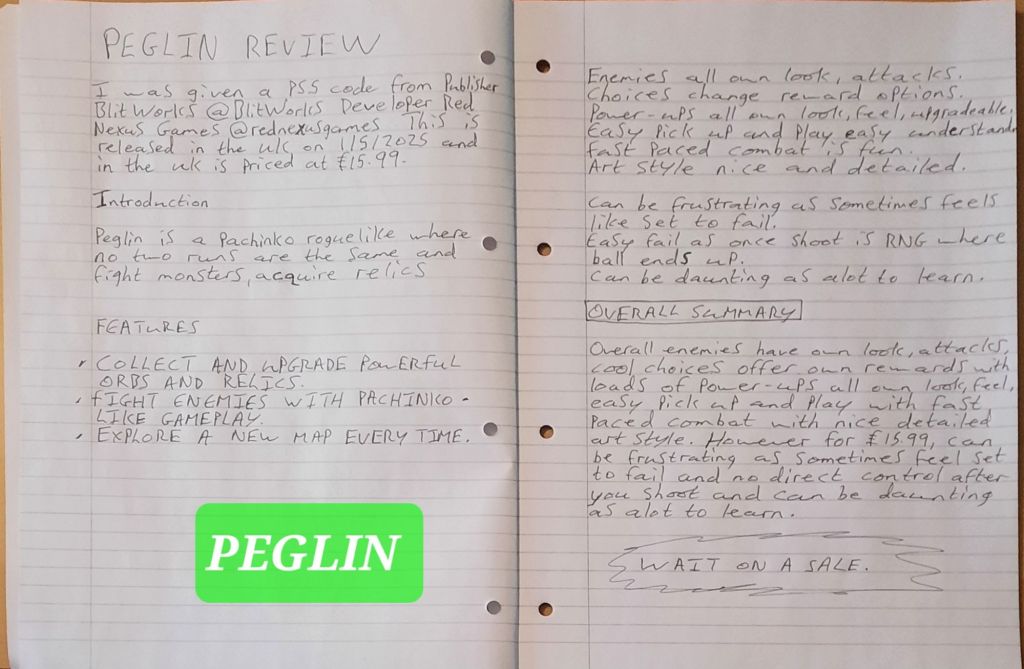 PEGLIN REVIEW
I was given a PS5 code from Publisher
BlitWorks @BlitWorks Developer Red
Nexus Games @rednexusgames This is
released in the UK on 1/5/2025 and
in the uk is priced at £15.99.
Introduction
Peglin is a Pachinko roguelike where
no two runs are the same and
fight monsters, acquire relics
FEATURES
COLLECT AND UPGRADE POWERFUL
ORBS AND RELICS.
FIGHT ENEMIES WITH PACHINKO-
LIKE GAMEPLAY.
EXPLORE A NEW MAP EVERY TIME.
PEGLIN
Enemies all own look, attacks.
Choices change reward options.
Power-ups all own look, feel, upgradeable,
Easy Pick up and Play easy understand
fast Paced combat is fun.
Art Style nice and detailed.
Can be frustrating as sometimes feels
like set to fail.
Easy fail as once shoot is RNG where
ball ends up.
Can be daunting as alot to learn.
OVERALL SUMMARY
Overall enemies have own look, attacks,
cool choices offer own rewards with
loads of Power-ups all own look, feel,
easy Pick up and Play with fast
Paced combat with nice detailed
art style. However for £15.99, can
be frustrating as sometimes feel set
to fail and no direct control after
you shoot and can be daunting
as alot to learn.
WAIT ON A SALE.